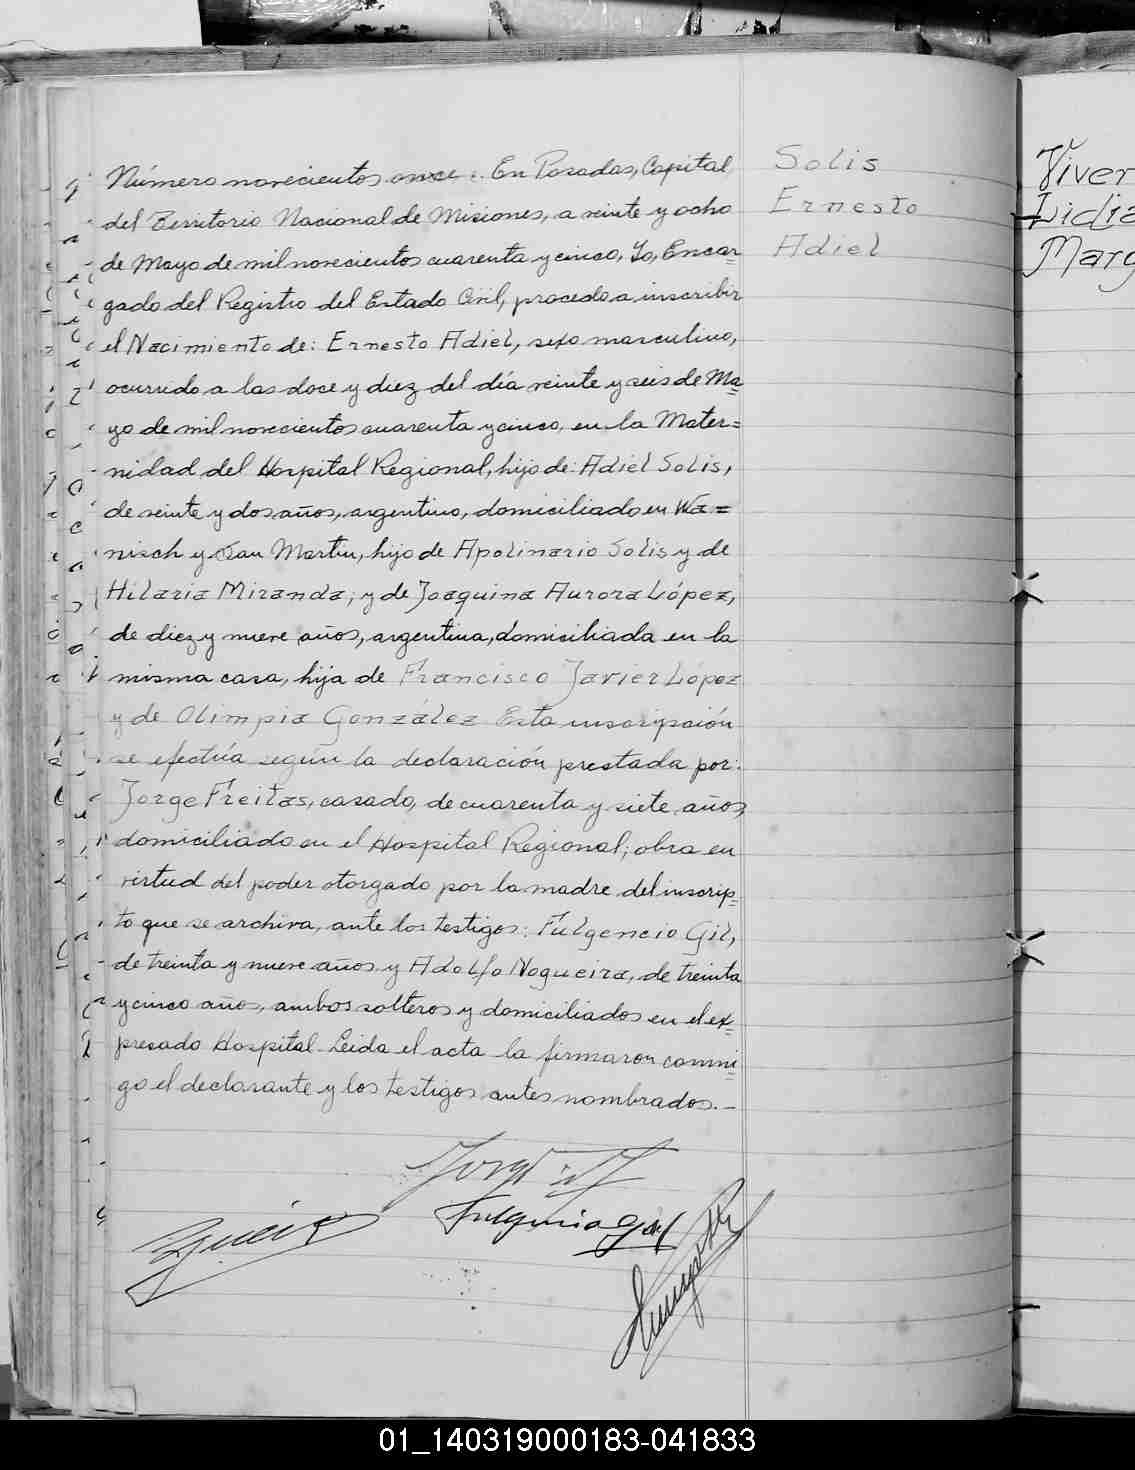 Solis
Ernesto
Adiel
Número novecientos once. En Posadas, Capital
del Territorio Nacional de Misiones, a veinte y ocho
de Mayo de mil novecientos cuarenta y cinco, Yo, Encar=
gado del Registro del Estado Civil, procedo a inscribir
el Nacimiento de: Ernesto Adiel, sexo masculino,
ocurrido a las doce y diez del día veinte y seis de Ma=
yo de mil novecientos cuarenta y cinco, en la Mater=
nidad del Hospital Regional, hijo de: Adiel Solis,
de veinte y dos años, argentino, domiciliado en Wa=
nisch y San Martin, hijo de Apolinario Solis y de
Hilaria Miranda; y de Joaquina Aurora López,
de diez y nueve años, argentina, domiciliada en la
misma casa, hija de Francisco Javier López
y de Olimpia González. Esta inscripción
se efectúa según la declaración prestada por:
Jorge Freitas, casado, de cuarenta y siete años,
domiciliado en el Hospital Regional; obra en
virtud del poder otorgado por la madre del inscrip=
to que se archiva, ante los testigos: Fulgencio Gil,
de treinta y nueve años y Adolfo Nogueira, de treinta
y cinco años, ambos solteros y domiciliados en el ex=
presado Hospital. Leida el acta la firmaron conmi=
go el declarante y los testigos antes nombrados.—
Fulgencio Gil
Viver
Lidia
Marg
01_140319000183-041833